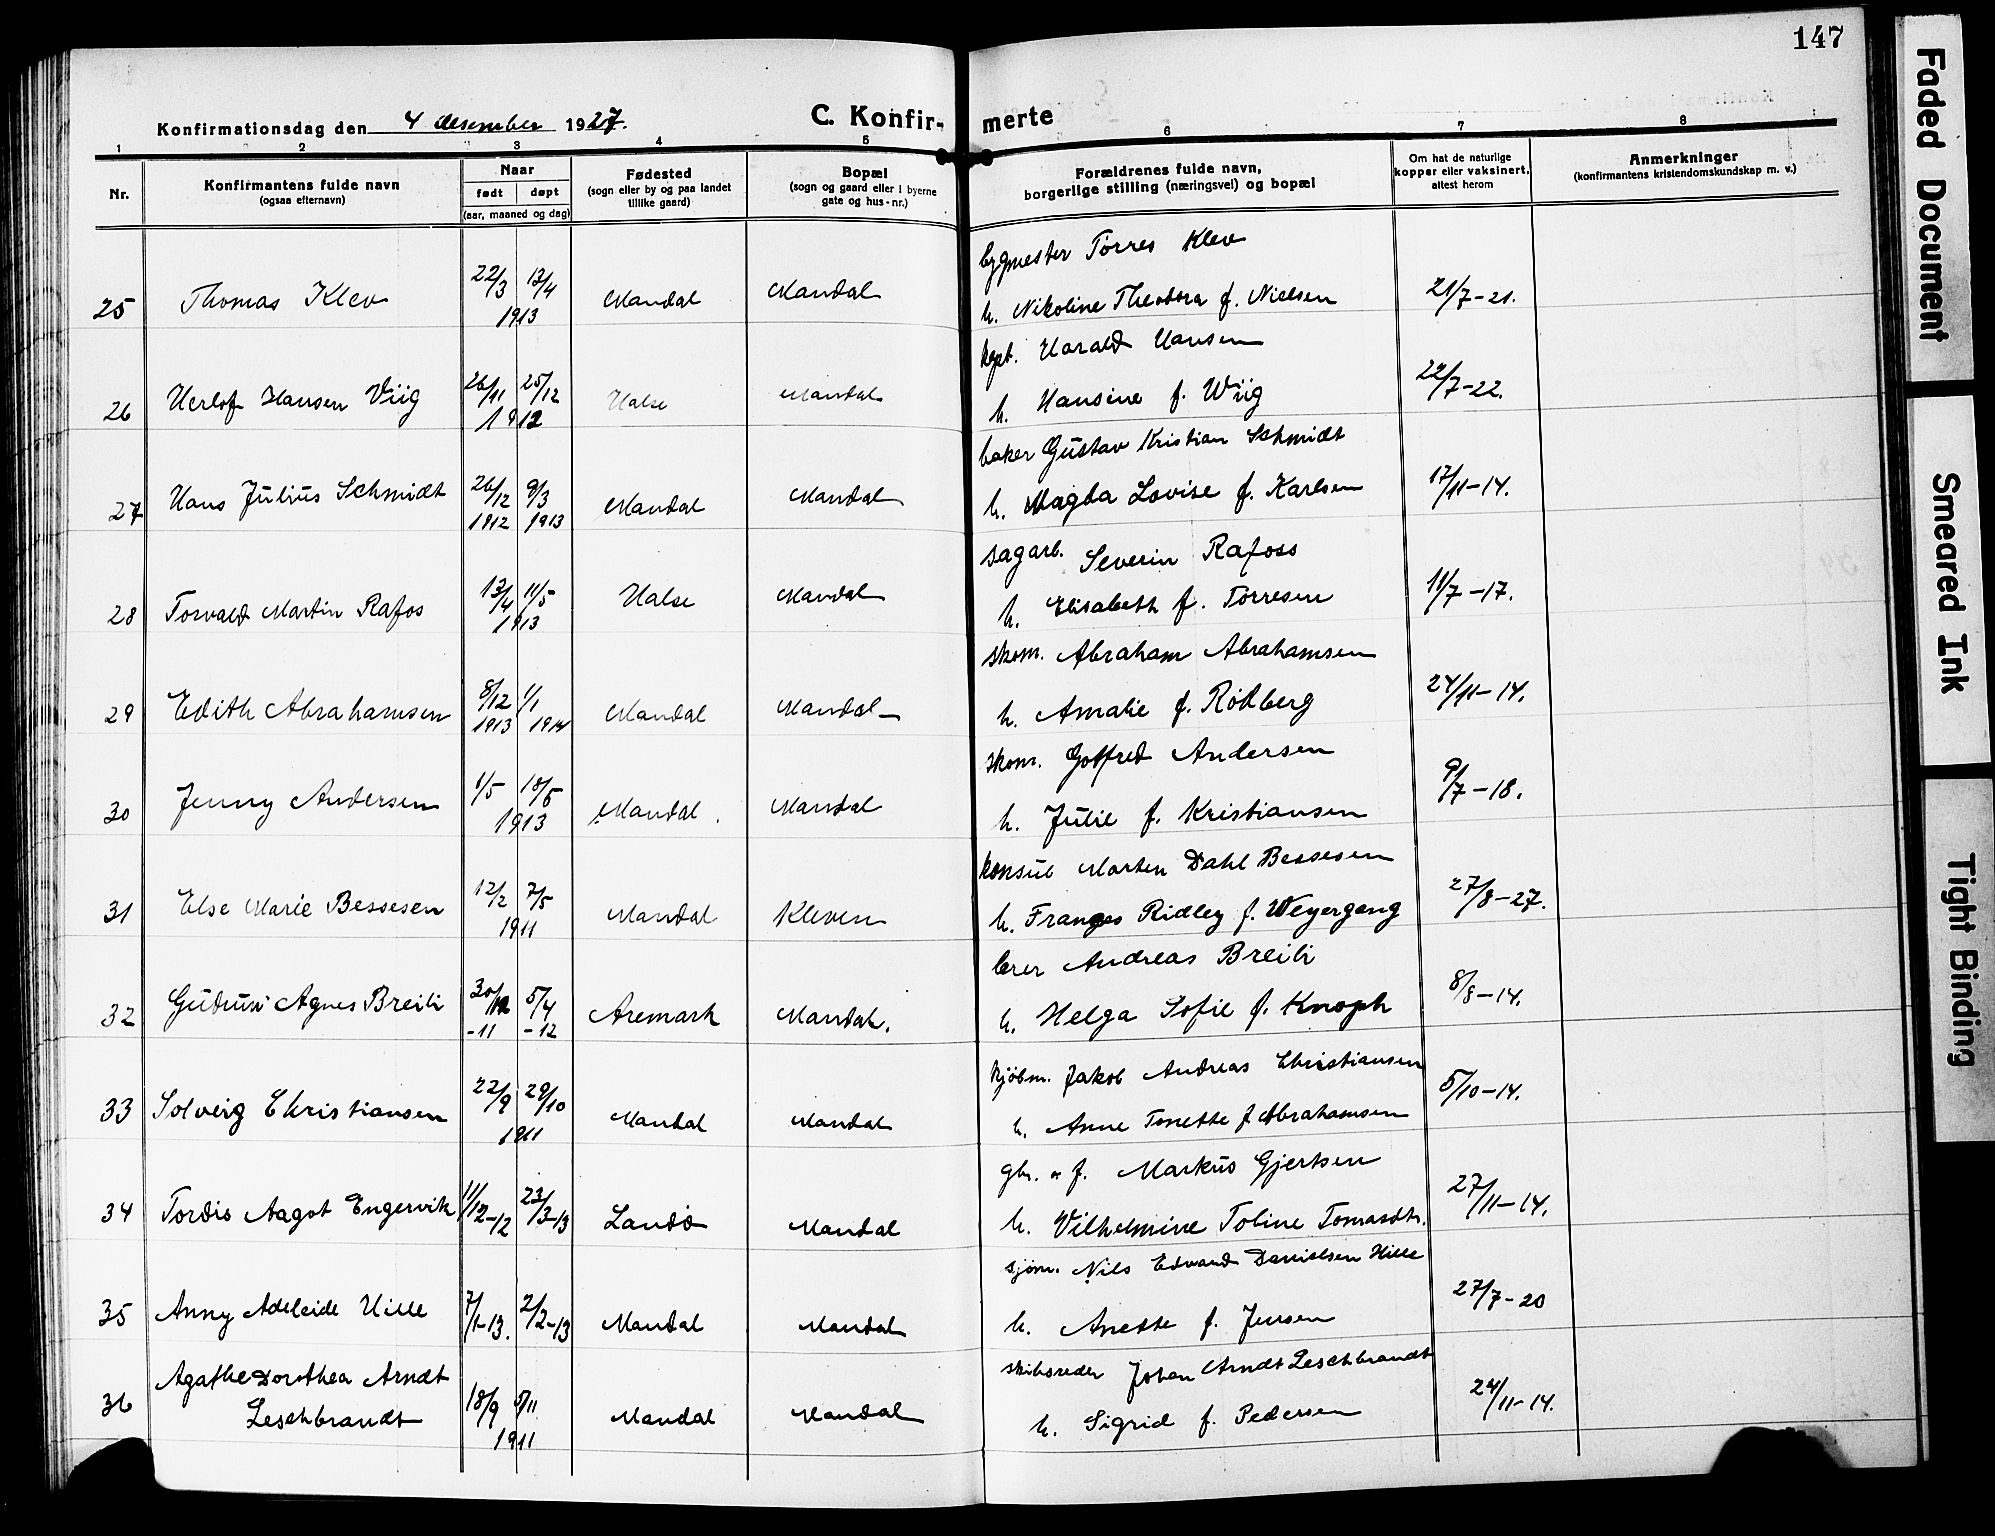 147
Konfirmationsdag den 4 desember 1927.
C. Konfir-merte
1 2 3 4 5 6 7 8
Nr.
Konfirmantens fulde navn
(ogsaa efternavn)
Naar
født døpt
(aar, maaned og dag)
Fødested
(sogn eller by og paa landet
tillike gaard)
Bopæl
(sogn og gaard eller i byerne
gate og hus-nr.)
Forældrenes fulde navn,
borgerlige stilling (næringsvei) og bopæl
Om hat de naturlige
kopper eller vaksinert,
attest herom
Anmerkninger
(konfirmantens kristendomskundskap m. v.)
bygmester Torres Klev
25 Thomas Klev 22/3 13/4 1913 Mandal Mandal h. Nikoline Theodora f. Nielsen 21/7-21.
kapt. Harald Hansen
26 Herlof Hansen Viig 26/11 25/12 1912 Halse Mandal h. Hansine f. Wiig 22/7-22.
baker Gustav Kristian Schmidt
27 Hans Julius Schmidt 26/12 1912 9/3 1913 Mandal Mandal h. Magda Lovise f. Karlsen 17/11-14.
sagarb. Severin Rafoss
28 Torvald Martin Rafos 13/4 11/5 1913 Halse Mandal h. Elisabeth f. Torresen 11/7-17.
skom. Abraham Abrahamsen
29 Edith Abrahamsen 8/12 1913 1/1 1914 Mandal Mandal h. Amalie f. Rødberg 24/11-14.
skom. Gotfred Andersen
30 Jenny Andersen 1/5 18/5 1913 Mandal. Mandal h. Julie f. Kristiansen 9/7-18.
konsul Morten Dahl Bessesen
31 Else Marie Bessesen 12/2 7/5 1911 Mandal Kleven h. Franges Ridley f. Weyergang 27/8-27.
lærer Andreas Breili
32 Gudrun Agnes Breili 30/12 -11 5/4 -12 Aremark Mandal. h. Helga Sofie f. Knoph 8/8-14.
kjøbm. Jakob Andreas Christiansen
33 Solveig Christiansen 22/9 29/10 1911 Mandal Mandal h. Anne Tonette f Abrahamsen 5/10-14.
gbr. o f. Markus Gjertsen
34 Tordis Aagot Engervik 11/12-12 23/3-13 Landø Mandal h. Vilhelmine Toline Tomasdtr. 27/11-14.
sjøm. Nils Edvard Danielsen Hille
35 Anny Adeleide Hille 7/1-13. 2/2-13 Mandal Mandal h. Anette f. Jensen 27/7-20
Agathe Dorothea Arndt skibsreder Johan Arndt Leschbrandt
36 Leschbrandt 18/9 5/11 1911 Mandal Mandal h. Sigrid f. Pedersen 24/11-14.
Faded Document
Smeared Ink
Tight Binding